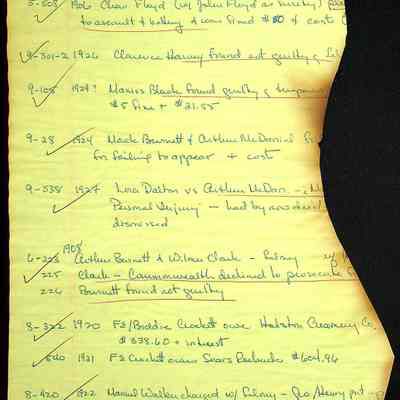 5-508 1906 Chas. Floyd (w/ John Floyd as surety)
to assault & battery & was fined $50 & cost
9-301-2 1926 Clarence Harvey found not guilty of
9-105 1924? Marius Black found guilty of
$5 fine + $21.55
9-28 1924 Mack Burnett & Arthur McDaniel
for failing to appear + cost
9-538 1927 Lora Dalton vs Arthur McDan
Personal Injury — had by now
dismissed
1908
6-223 Arthur Burnett & Wilmer Clark — Felony
225 Clark — Commonwealth declined to prosecute
226 Burnett found not guilty
8-322 1920 FS/Boddie Crockett owe Holston Creamery Co.
$538.60 + interest
540 1921 FS Crockett owes Sears Roebucks $604.96
8-420 1922 Manuel Walker charged w/ Felony — Geo/Henry